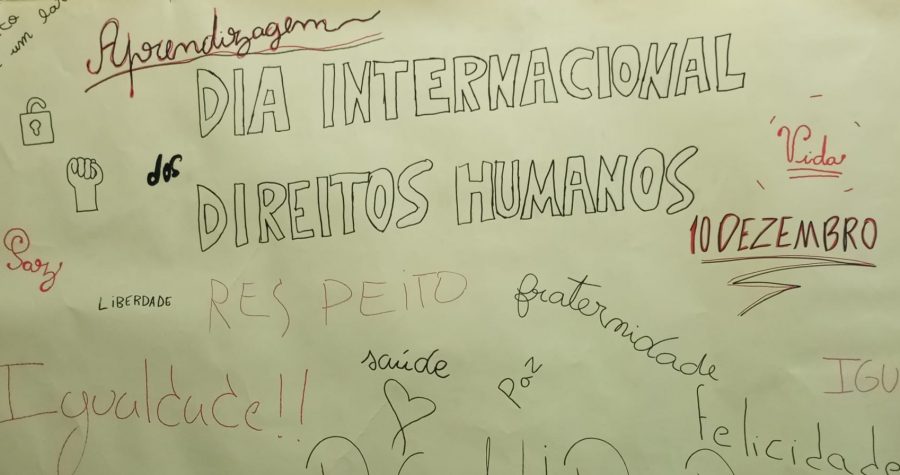 Aprendizagem
DIA INTERNACIONAL
dos
DIREITOS HUMANOS
Vida
10 DEZEMBRO
Paz
LIBERDADE
RESPEITO
fraternidade
saúde
Paz
Igualdade!!
IGU
Felicidade
um